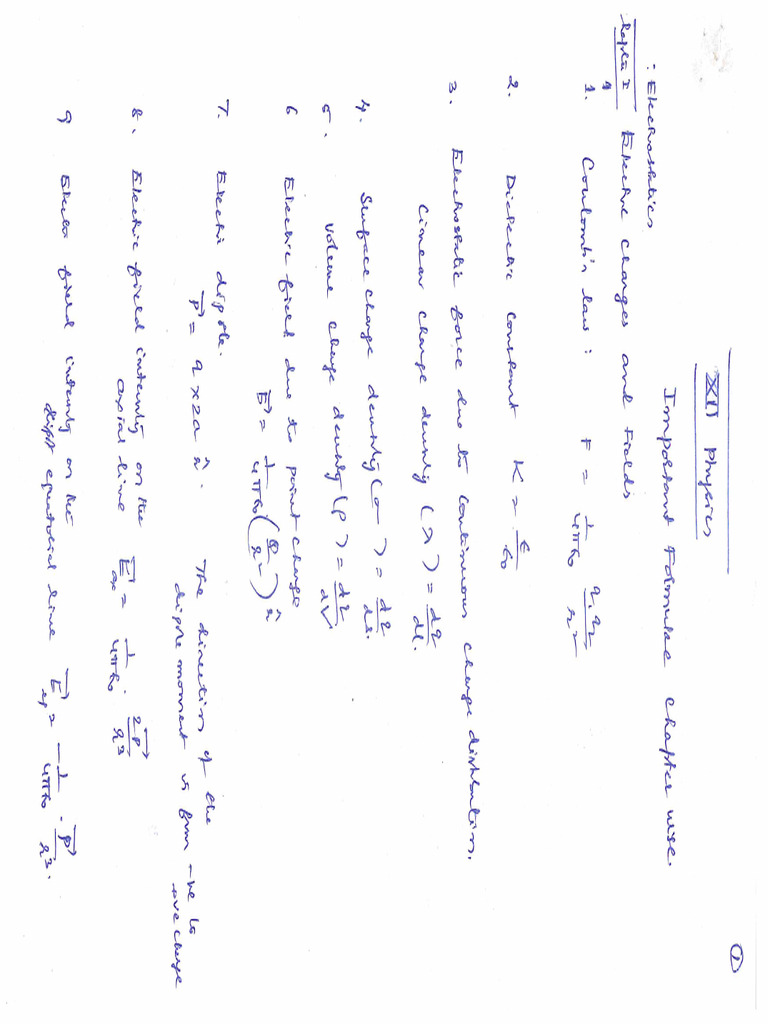 ①
XII Physics
Important Formulae chapter wise.
: Electrostatics
Chapter 1 Electric charges and Fields
1. Coulomb's law : F = 1/4πε₀ q₁q₂/r²
2. Dielectric constant K = ε/ε₀
3. Electrostatic force due to continuous charge distribution.
Linear charge density (λ) = dq/dl.
4. Surface charge density (σ) = dq/ds.
5. Volume charge density (ρ) = dq/dV
6 Electric field due to point charge
E⃗ = 1/4πε₀ (Q/r²) r̂
7. Electric dipole.
p⃗ = q × 2a r̂. The direction of the
dipole moment is from -ve to
+ve charge
8. Electric field intensity on the
axial line E⃗ax = 1/4πε₀ · 2p⃗/r³
9 Electric field intensity on the
equatorial line E⃗eq = -1/4πε₀ · p⃗/r³.